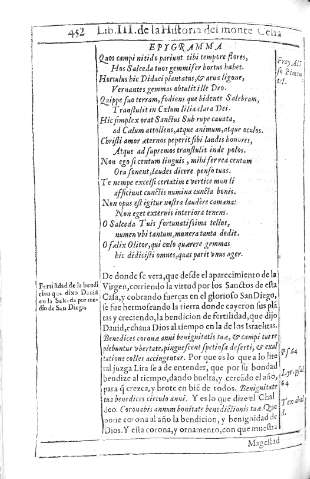 452 Lib. III. de la Historia del monte Celia
EPYGRAMMA
Quos campi nitidi pariunt tibi tempore flores,
Hos Salceda tuos gemmifer hortus habet.
Hortulus hic Didaci plantatus, & arus ligone,
Vernantes gemmas obtulit ille Deo.
Quippe suaterram, fodiens que bidente Salebram,
Transtulit in Cælum lilia clara Dei.
Hic simplex orat Sanctus Sub rupe cauata,
ad Calum attollens, atque animum, atque oculos.
Christi amor æternos peperit sibi laudis honores,
Atque ad supremos transtulit inde polos.
Non ego si centum linguis, mihi ferrea centum
Ora sonent, laudes dicere penso tuas.
Te nempe excelsi certatim e vertice montis
afficiunt cunctis numina cuncta bonis.
Non opus est igitur nostra laudire camæna:
Non eget externis interiora tenens.
O Salceda Tuis fortunatissima tellus,
numen vbi tantum, munera tanta dedit.
O fælix Olitor, qui culo quærere gemmas
hic didicisti omnes, quas parit vnus ager.
Fertilidad de la bendi
cion que dixo Dauid
en la Salceda por me-
dio de San Diego
De donde se vera, que desde el aparecimiento de la
Virgen, corriendo la virtud por los Sanctos de esta
Casa, y cobrando fuerças en el glorioso San Diego,
se fue hermoseando la tierra donde cayeron sus plã
tas y creciendo, la bendicion de fertilidad, que dijo
Dauid, echaua Dios al tiempo en la de los Israelitas.
Benedices coronæ anni benignitatis tuæ, & campi tui re
plebuntur vbertate, pinguescent speciosa deserti, & exul
tatione colles accingentur. Por que es lo que a lo lite
ral juzga Lira se a de entender, que por su bondad
bendize al tiempo, dando buelta, y cercãdo el año,
para q̃ crezca, y brote en biẽ de todos. Benignitate
tua benedices circulo anni. Y es lo que dixe el Chal
deo. Coronabis annum bonitate benedictionis tuæ. Que
pone corona al año la bendicion, y benignidad de
Dios. Y esta corona, y ornamento, con que muestra
Magestad
Ps. 64
64